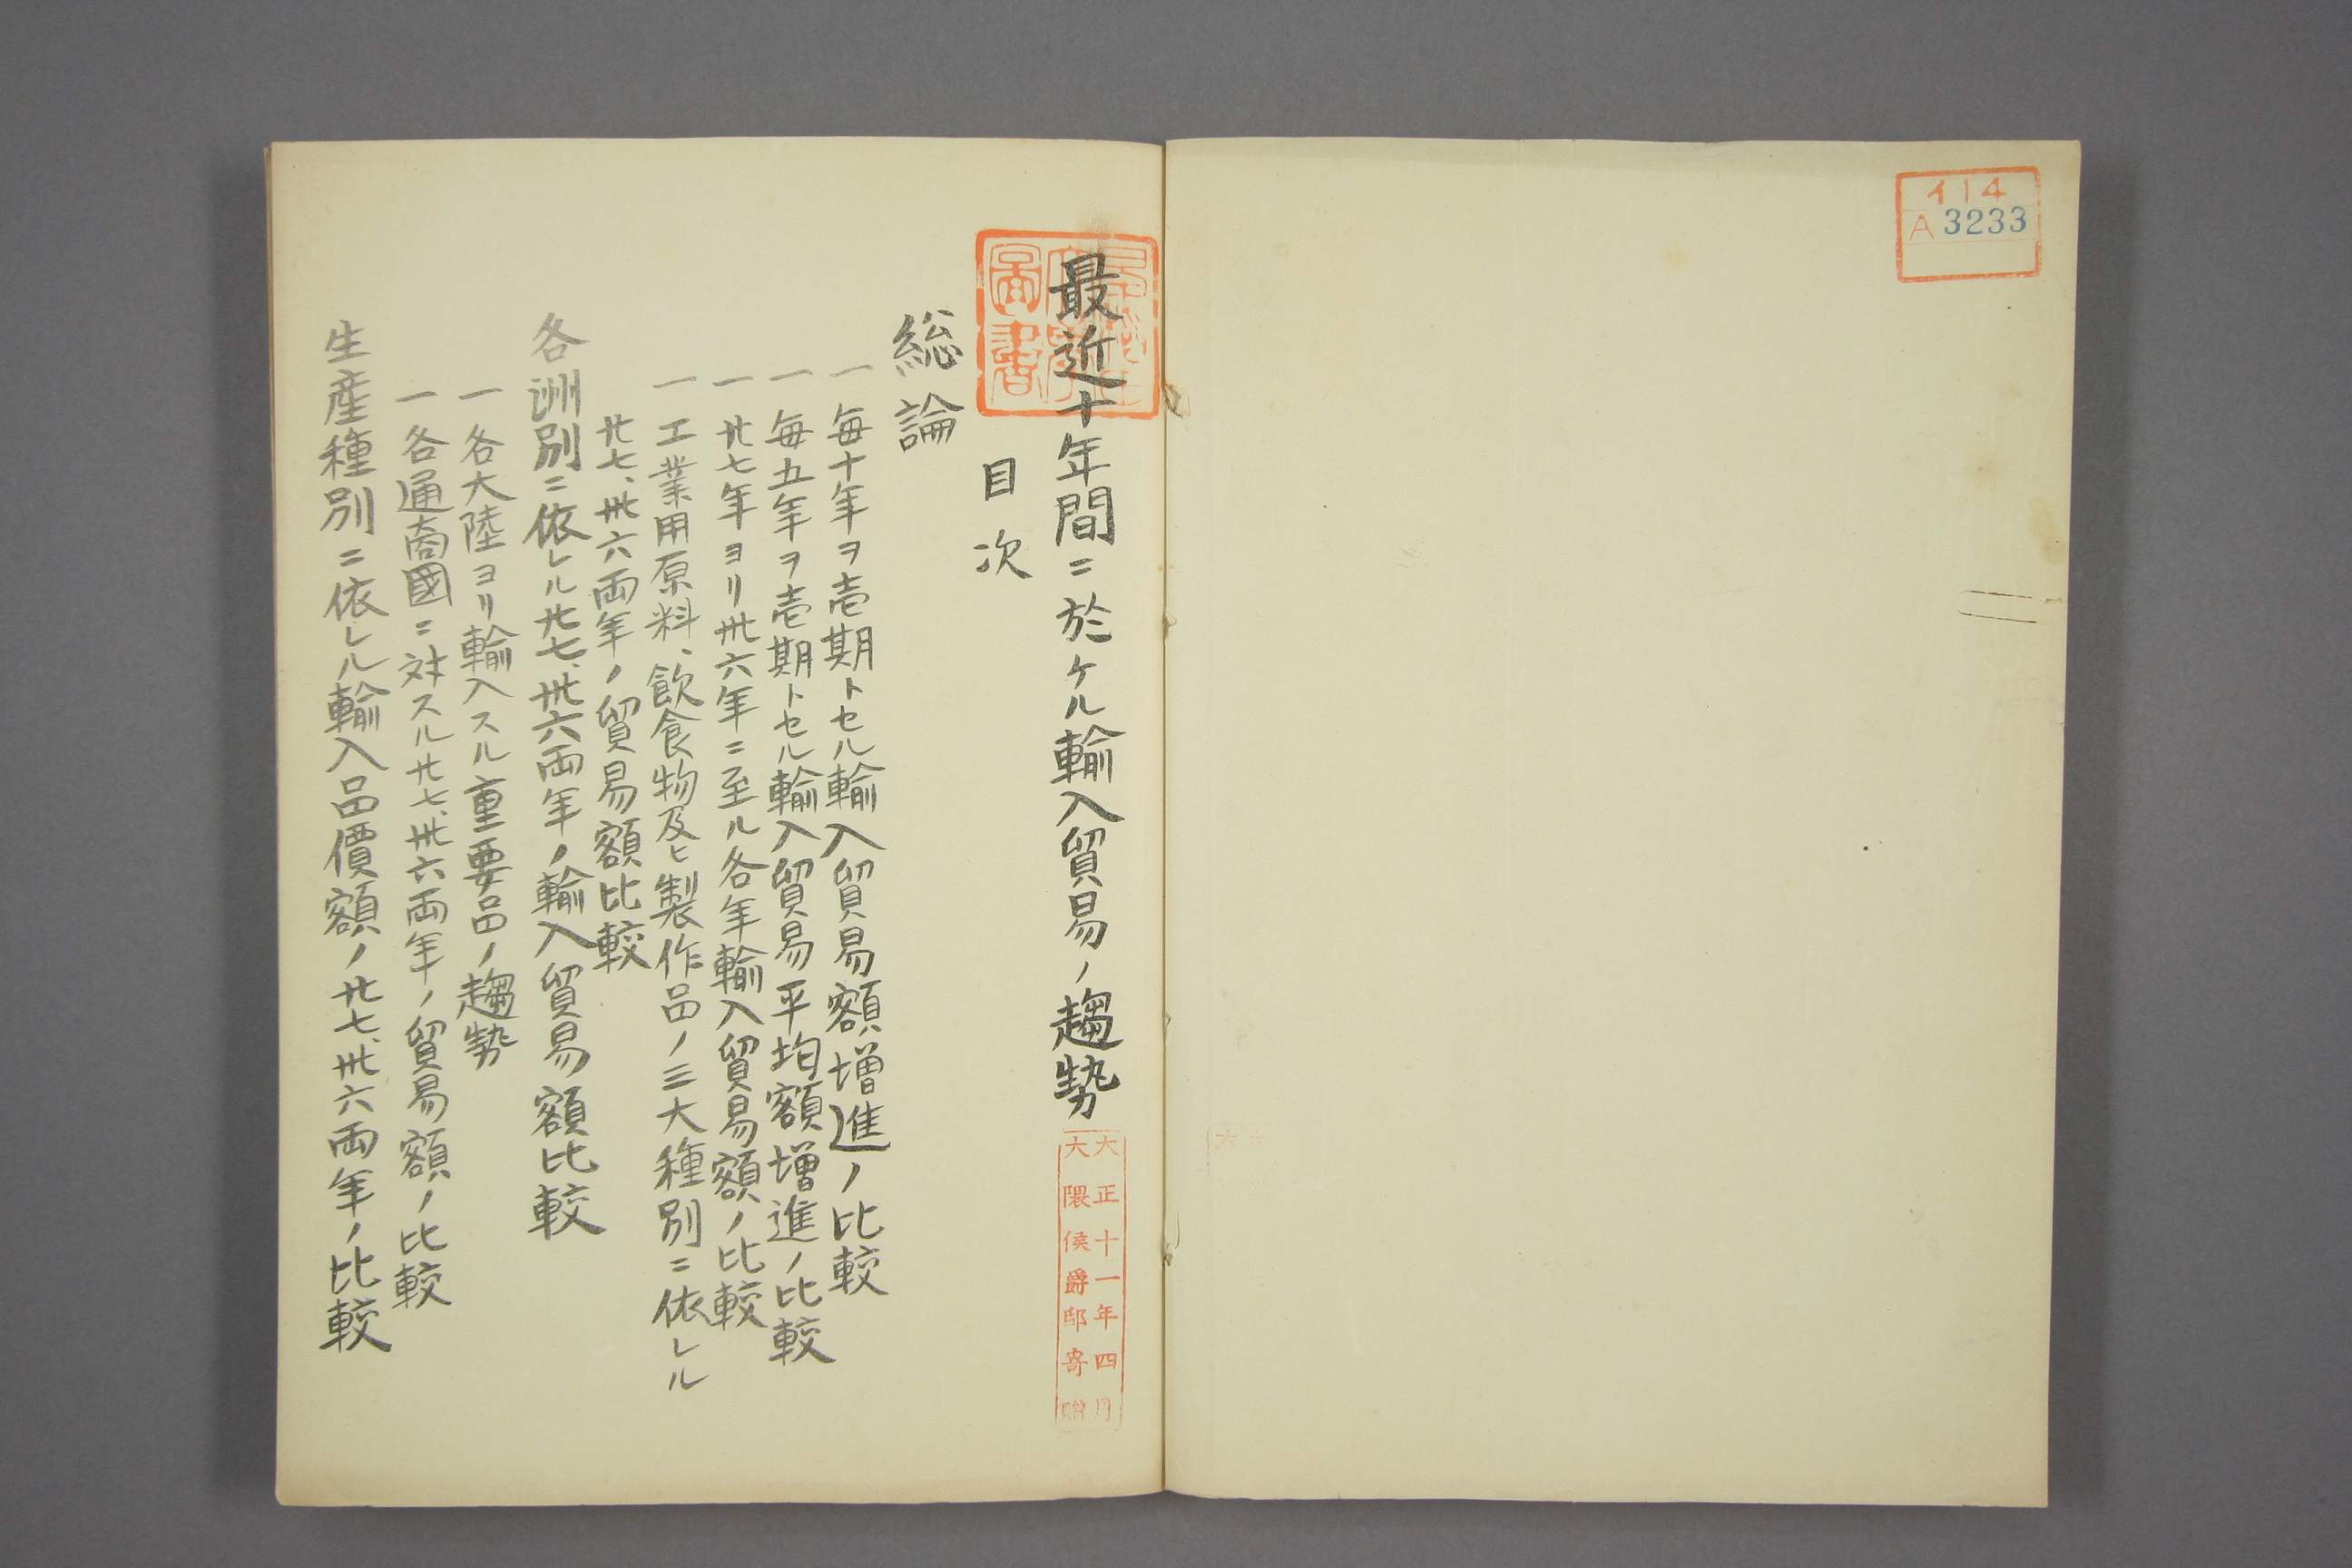 イ14
A 3233
最近十年間ニ於ケル輸入貿易ノ趨勢
大正十一年四月
大隈侯爵邸寄贈
目次
総論
一 毎十年ヲ壱期トセル輸入貿易額増進ノ比較
一 毎五年ヲ壱期トセル輸入貿易平均額増進ノ比較
一 廿七年ヨリ卅六年ニ至ル各年輸入貿易額ノ比較
一 工業用原料、飲食物及ヒ製作品ノ三大種別ニ依レル
廿七、卅六両年ノ貿易額比較
各洲別ニ依レル廿七、卅六両年ノ輸入貿易額比較
一 各大陸ヨリ輸入スル重要品ノ趨勢
一 各通商國ニ対スル廿七、卅六両年ノ貿易額ノ比較
生産種別ニ依レル輸入品價額ノ廿七、卅六両年ノ比較